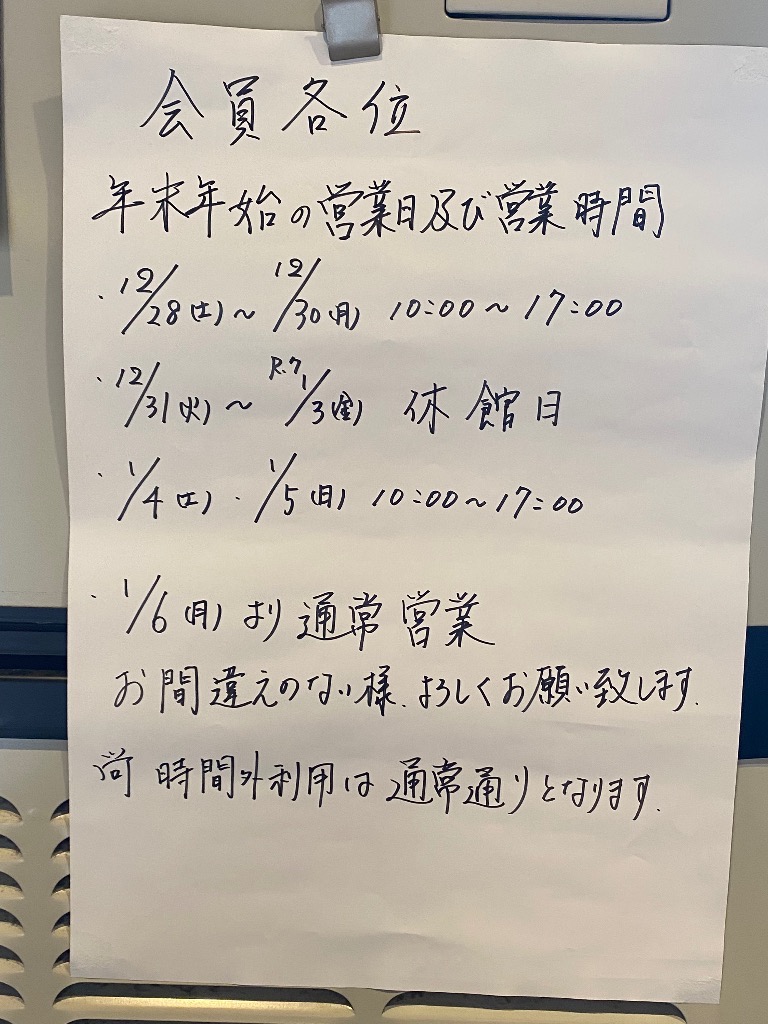 会員各位
年末年始の営業日及び営業時間
・12/28(土)～12/30(月) 10:00～17:00
・12/31(火)～R.7 1/3(金) 休館日
・1/4(土)・1/5(日) 10:00～17:00
・1/6(月)より通常営業
お間違えのない様、よろしくお願い致します.
尚 時間外利用は通常通りとなります.